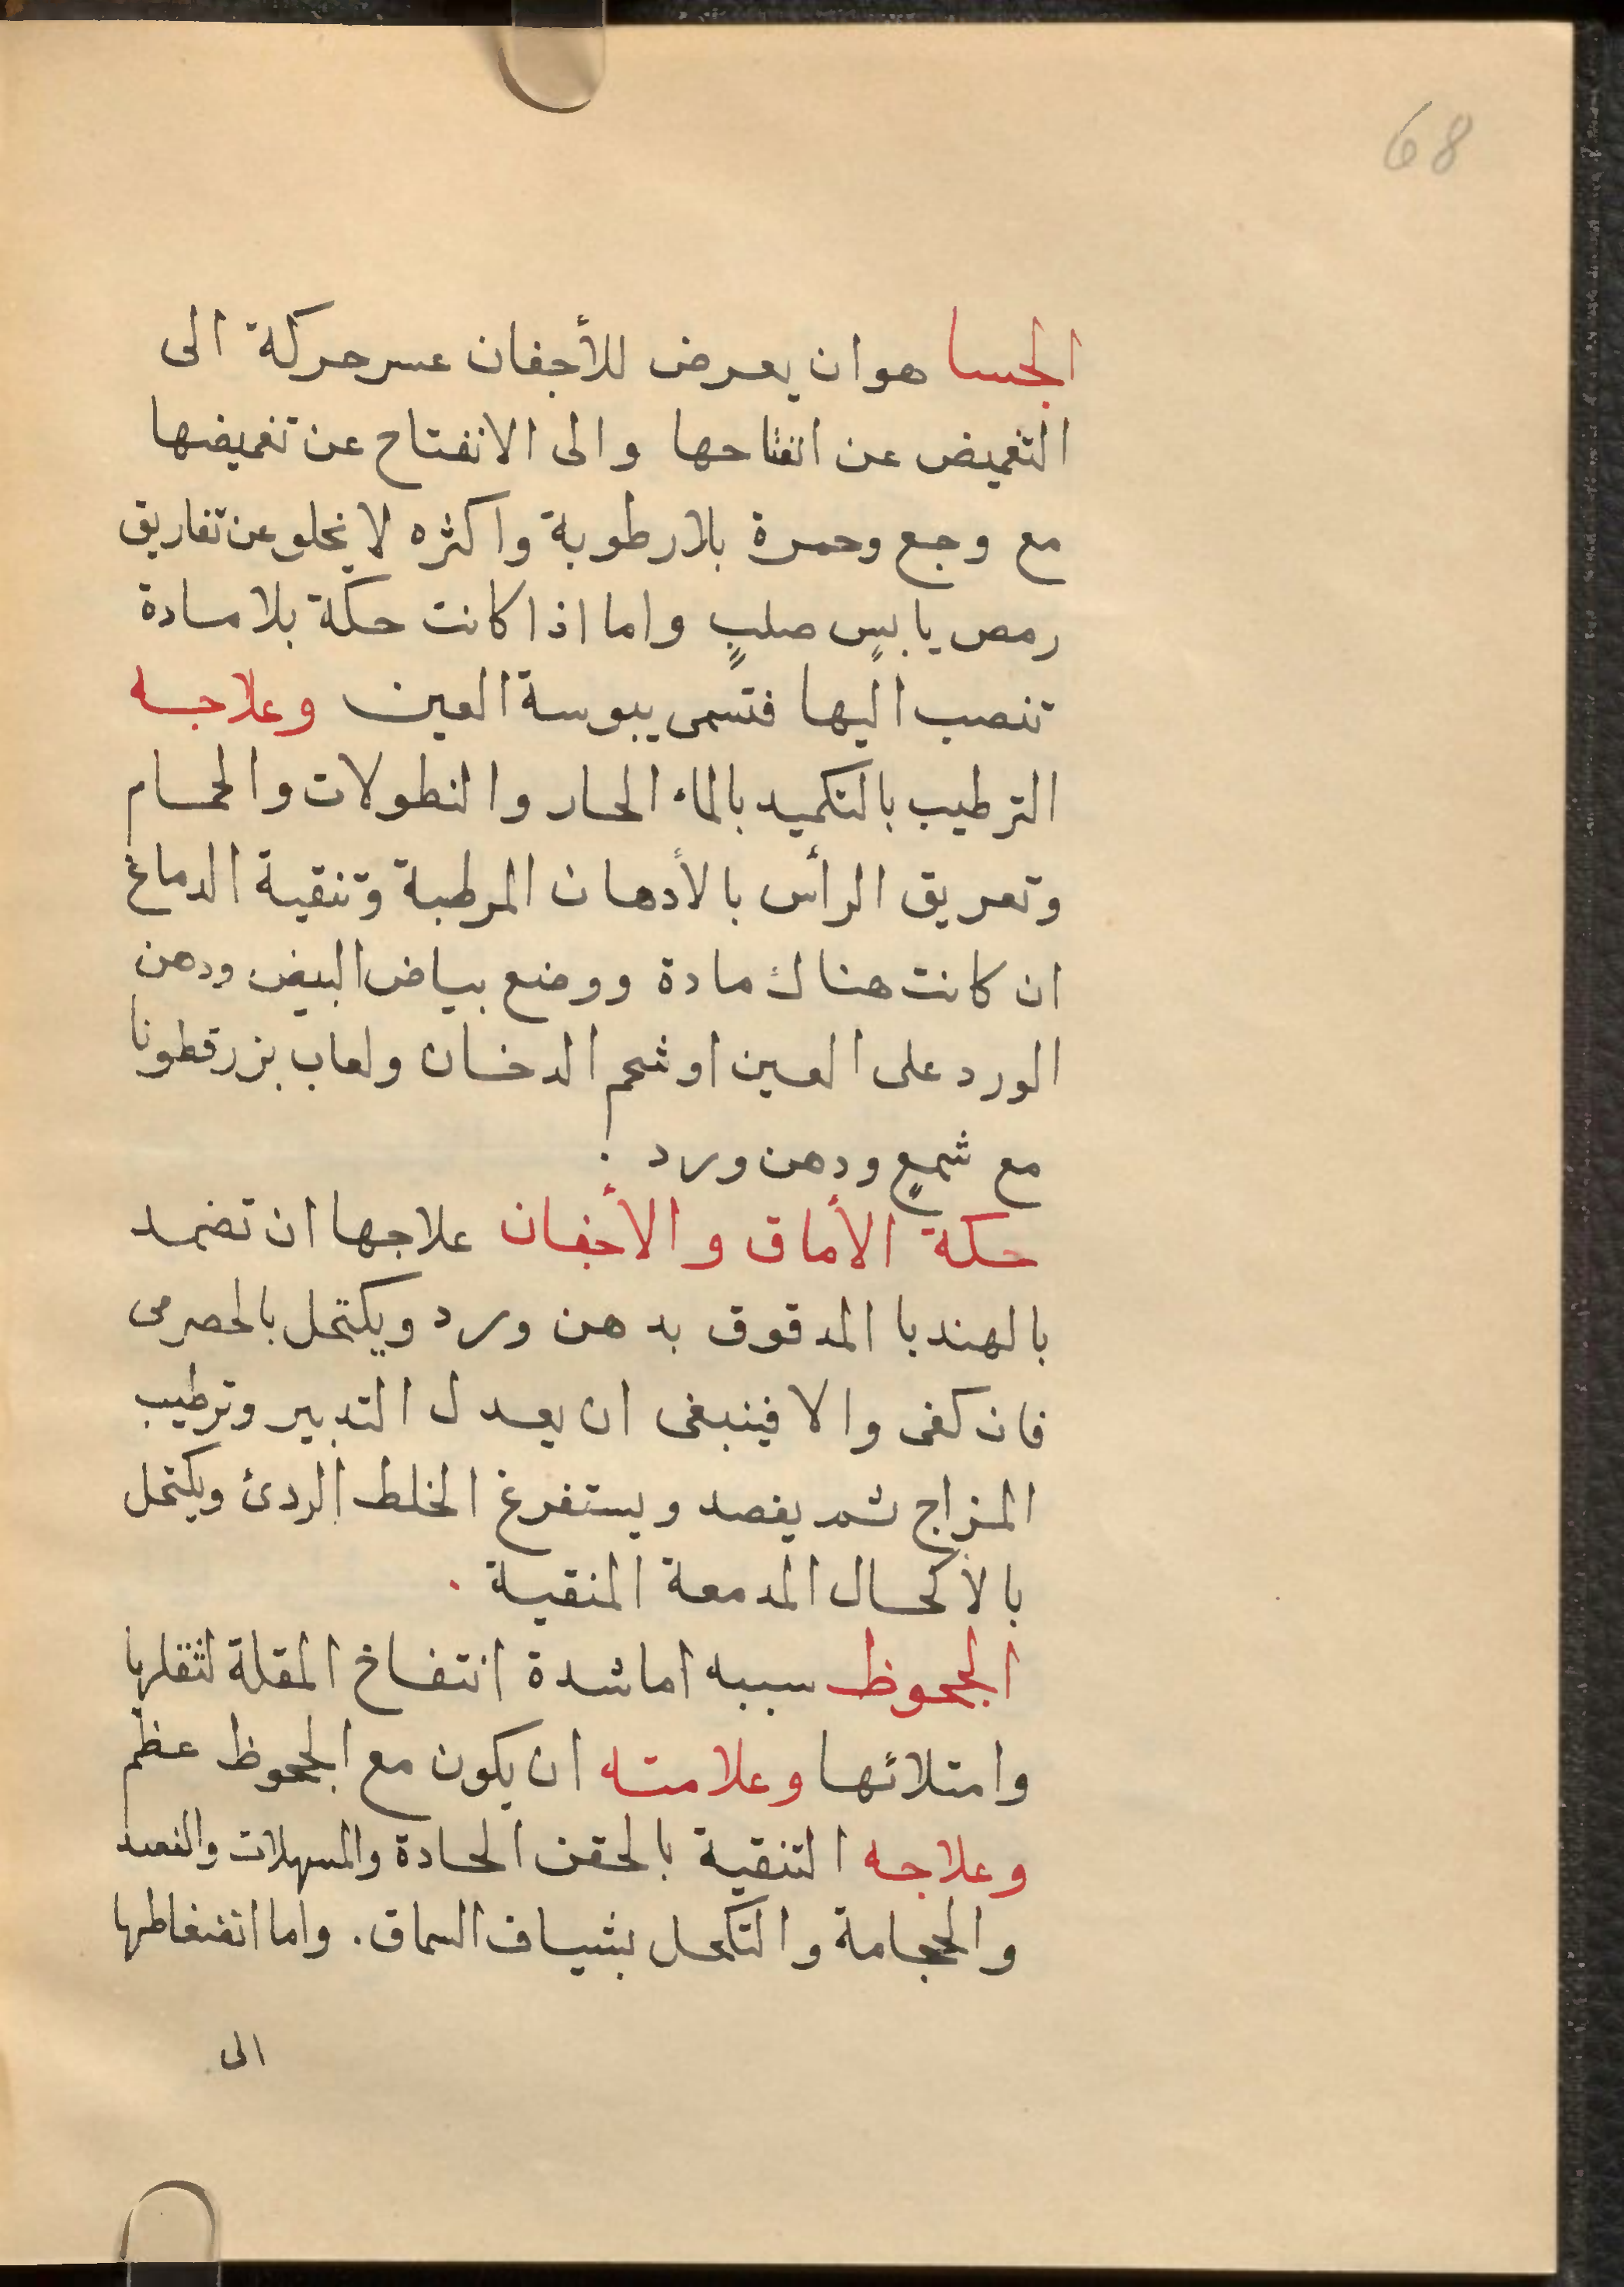 68
الجسا هو ان يعرض للأجفان عسر حركة الى
التغميض عن انفتاحها والى الانفتاح عن تغميضها
مع وجع وحمرة بلا رطوبة واكثره لا يخلو عن تفاريق
رمص يابسٍ صلبٍ واما اذا كانت حكة بلا مادة
تنصب اليها فتسمى يبوسة العين وعلاجه
الترطيب بالتكميد بالماء الحار والنطولات والحمام
وتعريق الرأس بالأدهان المرطبة وتنقية الدماغ
ان كانت هناك مادة ووضع بياض البيض ودهن
الورد على العين او شحم الدخان ولعاب بزرقطونا
مع شمعٍ ودهن ورد .
حكة الأماق والأجفان علاجها ان تضمد
بالهندبا المدقوق بدهن ورد ويكتحل بالحصرمى
فان كفى والا فينبغى ان يعدل التدبير وترطيب
المزاج ثم يفصد ويستفرغ الخلط الردئ ويكتحل
بالأكحال المدمعة المنقية .
الجحوظ سببه اما شدة انتفاخ المقلة لثقلها
وامتلائها وعلامته ان يكون مع الجحوظ عظم
وعلاجه التنقية بالحقن الحادة والمسهلات والفصد
والحجامة والتكحل بشياف السماق. واما انضغاطها
الى